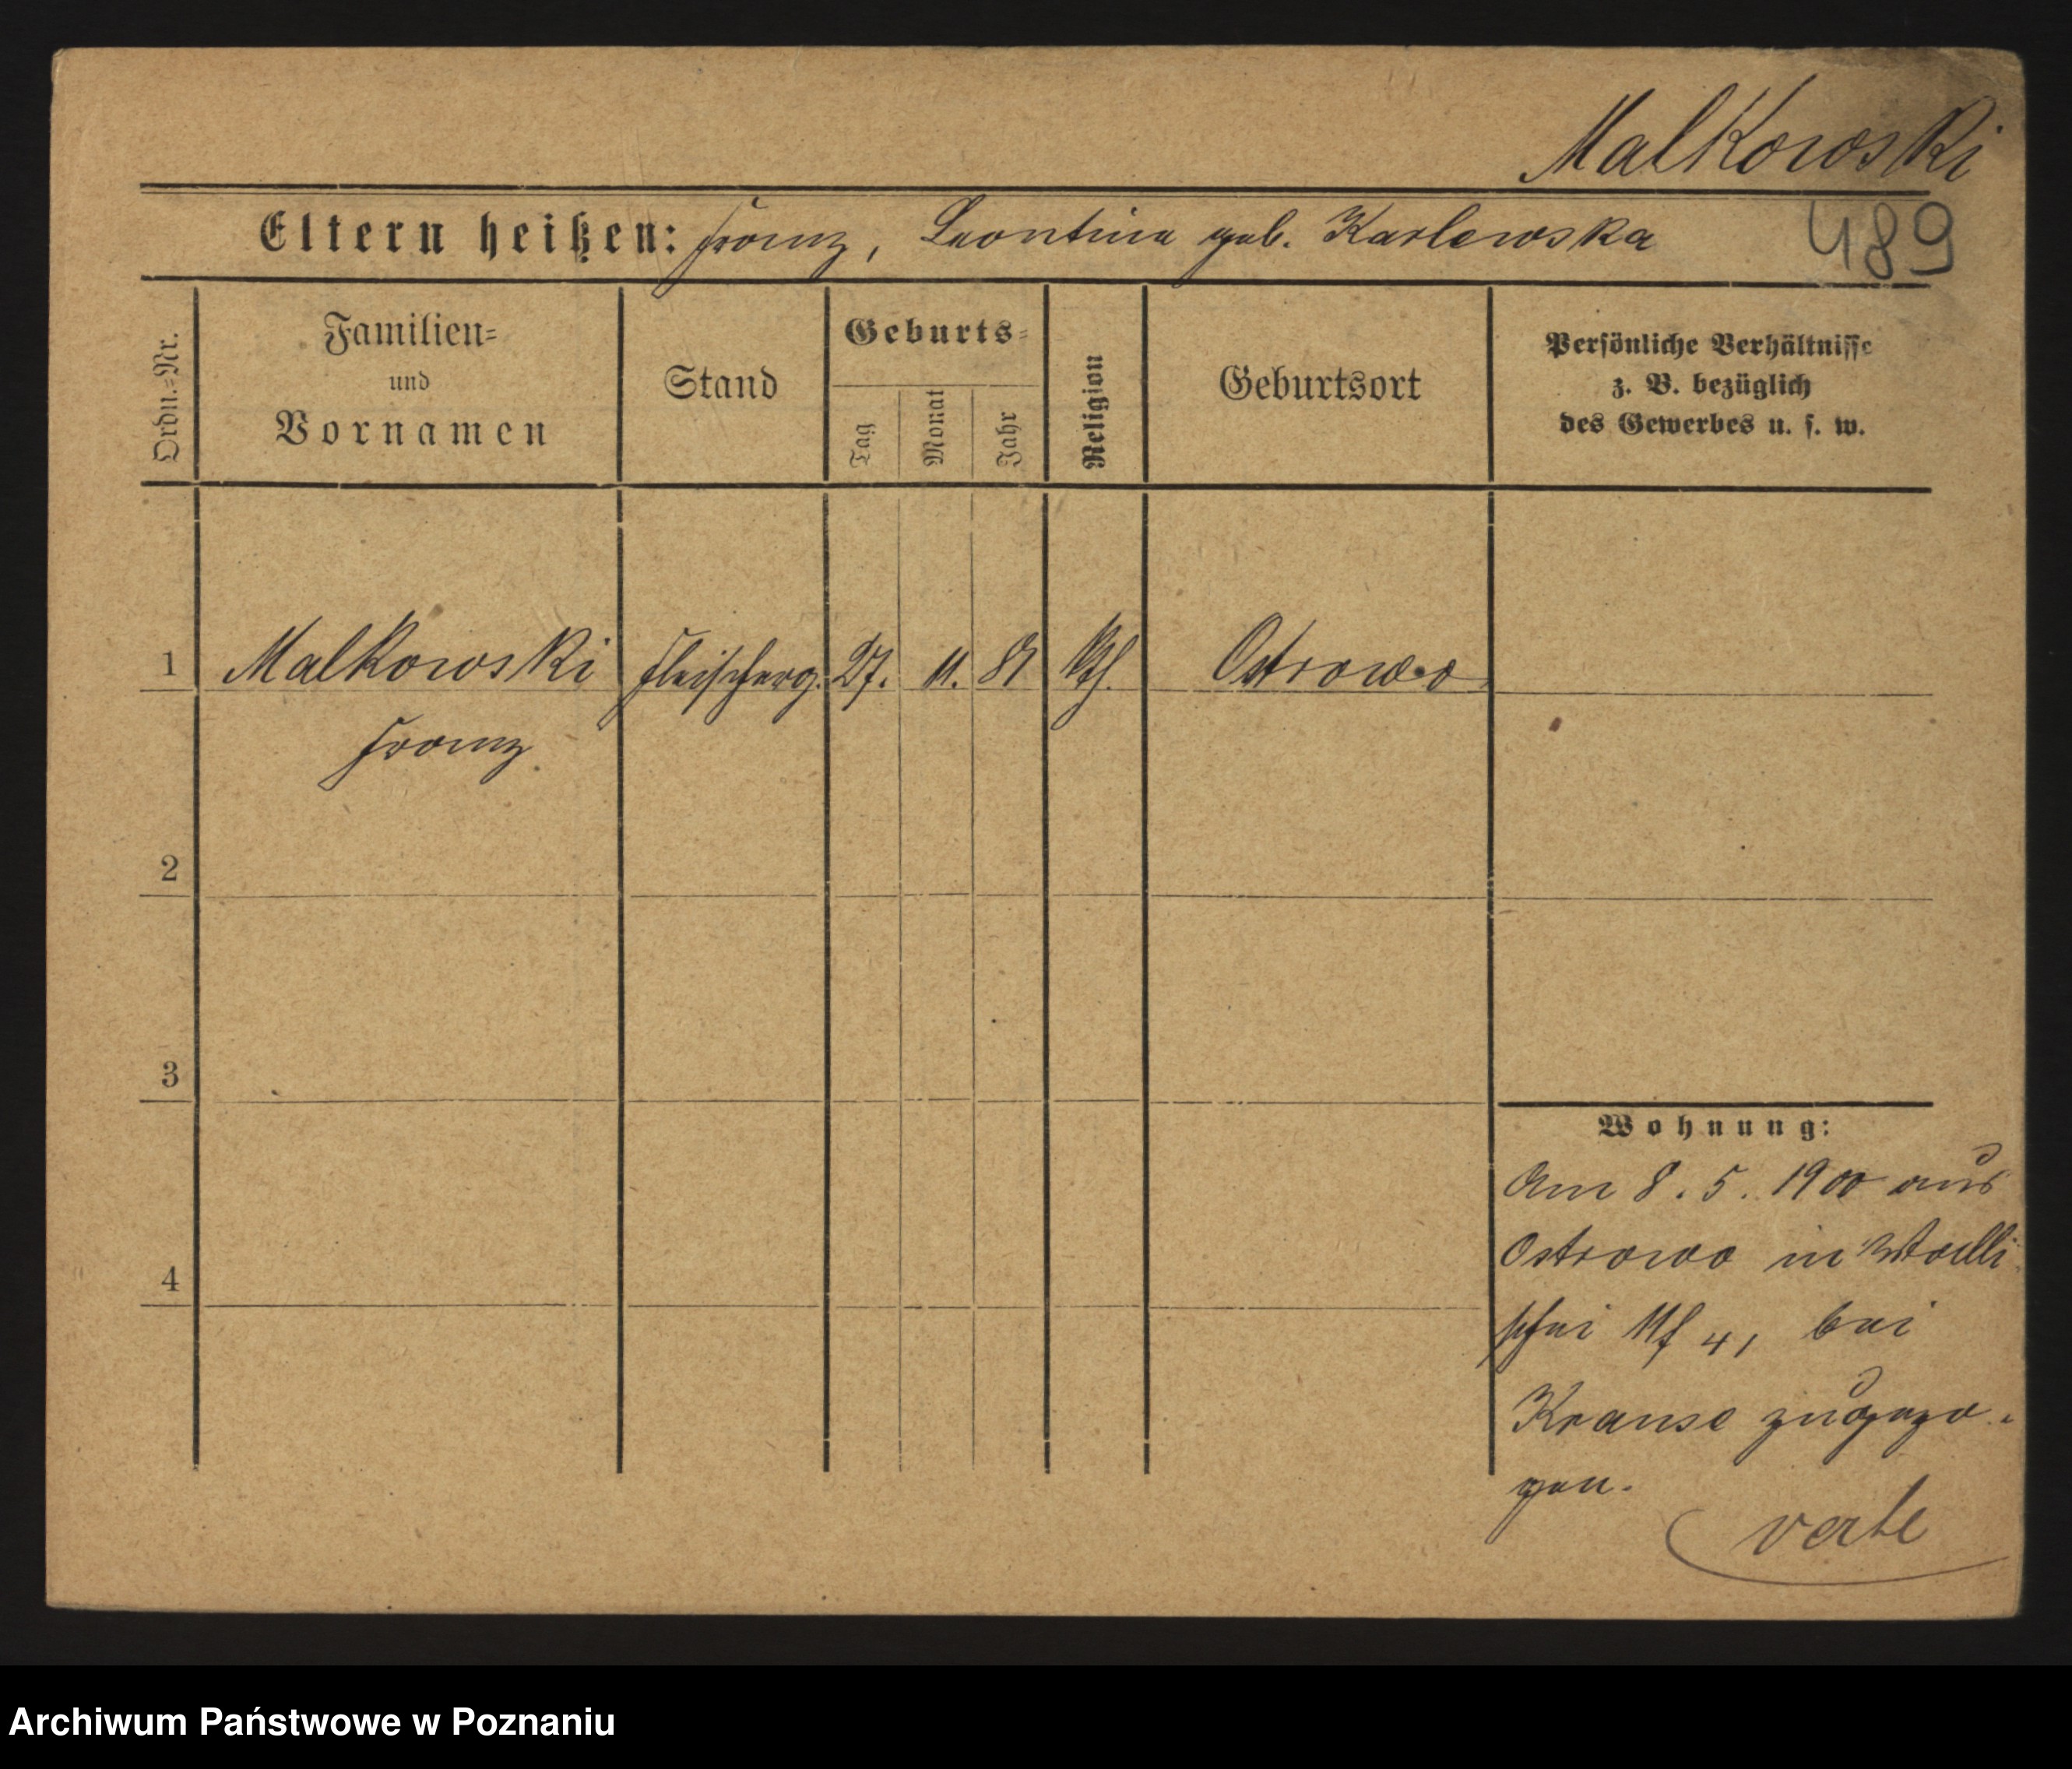 Malkowski
Eltern heißen: Franz, Leontine geb. Karlewska
489
Ordn.=Nr.
Familien=
und
Vornamen
Stand
Geburts=
Tag
Monat
Jahr
Religion
Geburtsort
Persönliche Verhältnisse
z. B. bezüglich
des Gewerbes u. s. w.
1 Malkowski Fleischerg. 27. 11. 81 kth. Ostrowo
Franz
2
3
4
Wohnung:
Am 8. 5. 1900 aus
Ostrowo in
4, bei
Krause zugezo-
gen.
verte
Archiwum Państwowe w Poznaniu